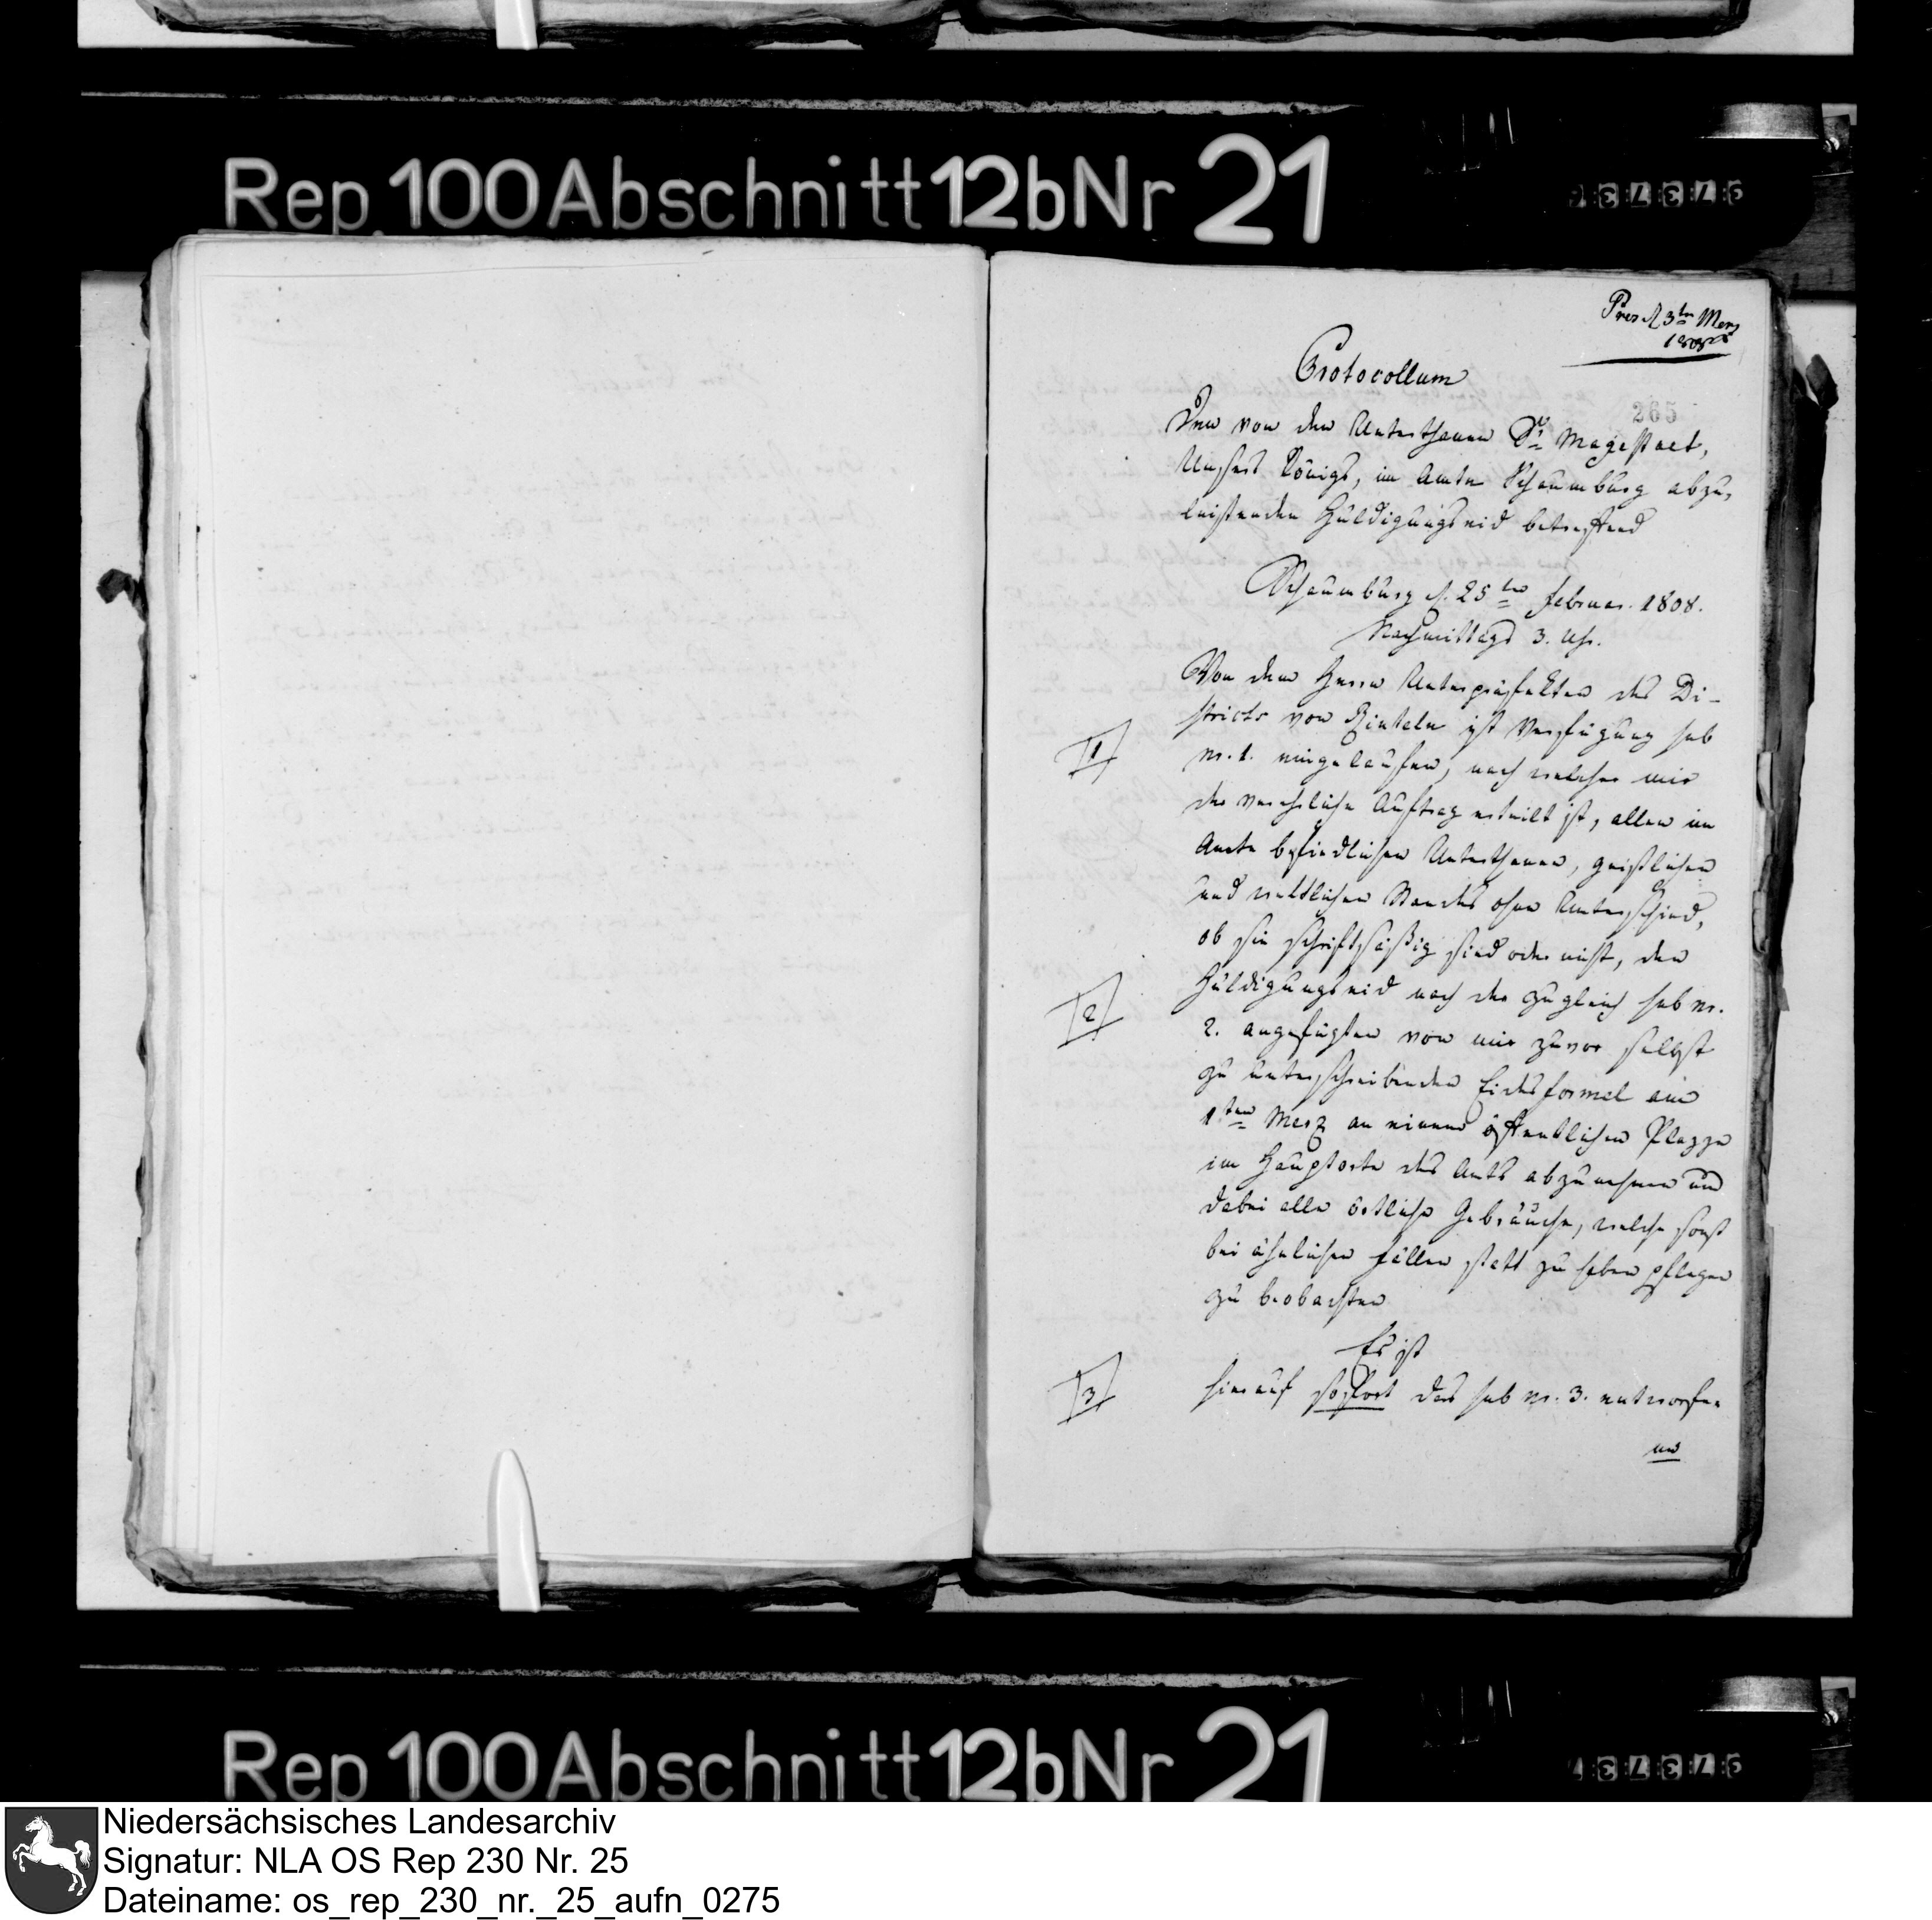 Rep. 100 Abschnitt 12b Nr 21
Pres. d 3ten Merz
1808
Protocollum
265
Den von den Unterthanen Sr Magestaet,
Unsers Königs, im Amte Schaumburg abzu,
leistenden Huldigungseid betreffend
Schaumburg d. 25ten Februar. 1808.
Nachmittags 3. Uhr.
Von dem Herrn Unterpräfekten des Di-
stricts von Rinteln ist Verfügung sub
1
nr. 1. eingelaufen, nach welcher mir
der verehrliche Auftrag erteilt ist, allen im
Amte befindlichen Unterthanen, geistlichen
und weltlichen Standes ohne Unterschied,
ob sie schriftsäßig sind oder nicht, den
Huldigungseid nach der zugleich sub nr.
2
2. angefügten von mir zuvor selbst
zu unterschreibenden Eidesformel am
1ten Merz an einem öffentlichen Plazze
im Hauptorte des Amts abzunehmen und
dabei alle örtliche Gebräuche, welche sonst
bei ähnlichen Fällen statt zu haben pflegen
zu beobachten
Es ist
3
hierauf sofort das sub nr. 3. entworfe-
ne
Rep 100 Abschnitt 12b Nr 21
Niedersächsisches Landesarchiv
Signatur: NLA OS Rep 230 Nr. 25
Dateiname: os_rep_230_nr._25_aufn_0275